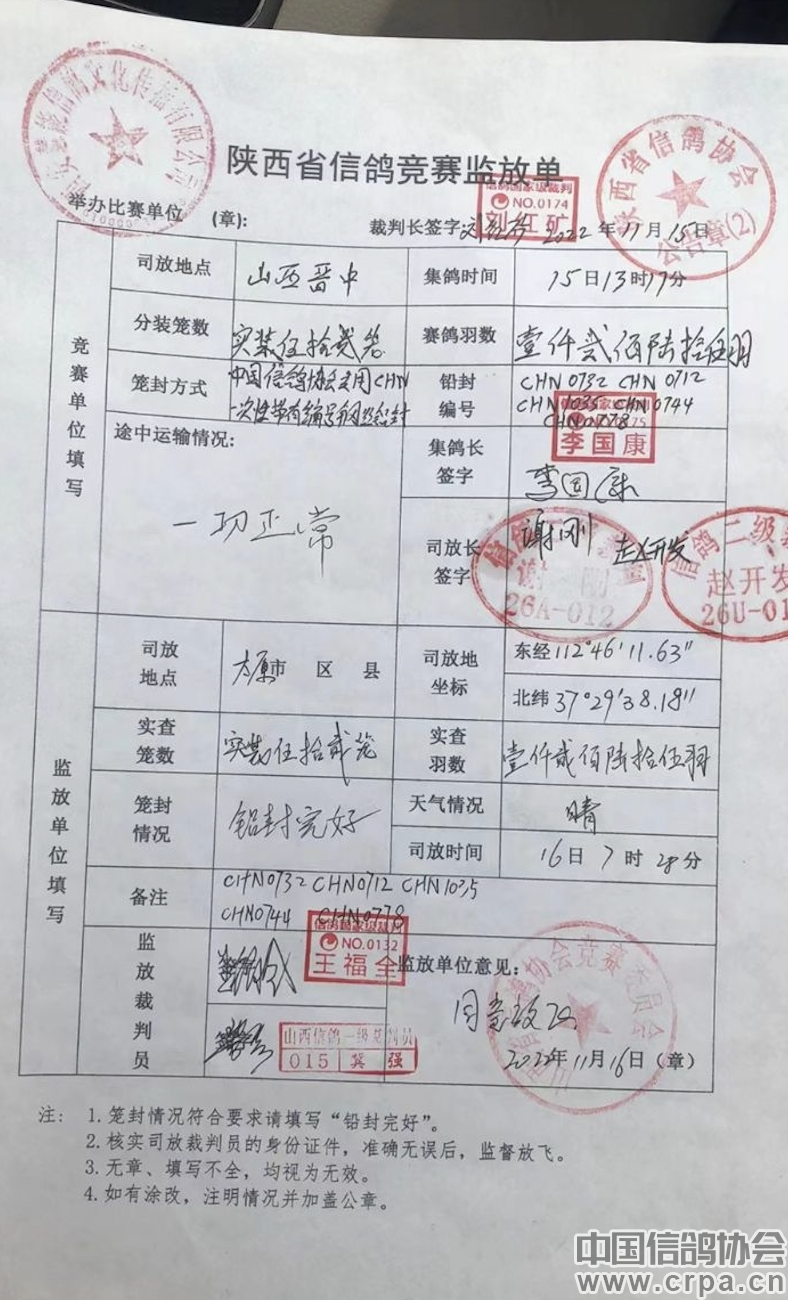 陕西省信鸽竞赛监放单
信鸽文化传播有限公司
陕西省信鸽协会
公告章(2)
信鸽国家级裁判
NO.0174
刘红矿
举办比赛单位 (章): 裁判长签字 2022年11月15日
竞赛单位填写
司放地点 山西晋中 集鸽时间 15日13时17分
分装笼数 实装伍拾贰笼 赛鸽羽数 壹仟贰佰陆拾伍羽
笼封方式 中国信鸽协会专用CHN
一次性带有编号钢丝铅封
铅封编号 CHN0732 CHN0712
CHN1035 CHN0744
CHN0778
途中运输情况:
一切正常
集鸽长签字 李国康
李国康
司放长签字 谢刚 赵开发
谢刚
26A-012
信鸽二级裁
赵开发
26U-01
监放单位填写
司放地点 太原市 区 县
司放地坐标 东经112°46′11.63″
北纬37°29′38.18″
实查笼数 实装伍拾贰笼 实查羽数 壹仟贰佰陆拾伍羽
笼封情况 铅封完好 天气情况 晴
司放时间 16日7时28分
备注 CHN0732 CHN0712 CHN1035
CHN0744 CHN0778
监放裁判员
信鸽国家级裁判
NO.0132
王福全
山西信鸽一级裁判员
015 冀强
监放单位意见:
同意放飞
信鸽协会竞赛委员会
2022年11月16日(章)
注: 1. 笼封情况符合要求请填写“铅封完好”。
2. 核实司放裁判员的身份证件，准确无误后，监督放飞。
3. 无章、填写不全，均视为无效。
4. 如有涂改，注明情况并加盖公章。
中国信鸽协会
www.crpa.cn